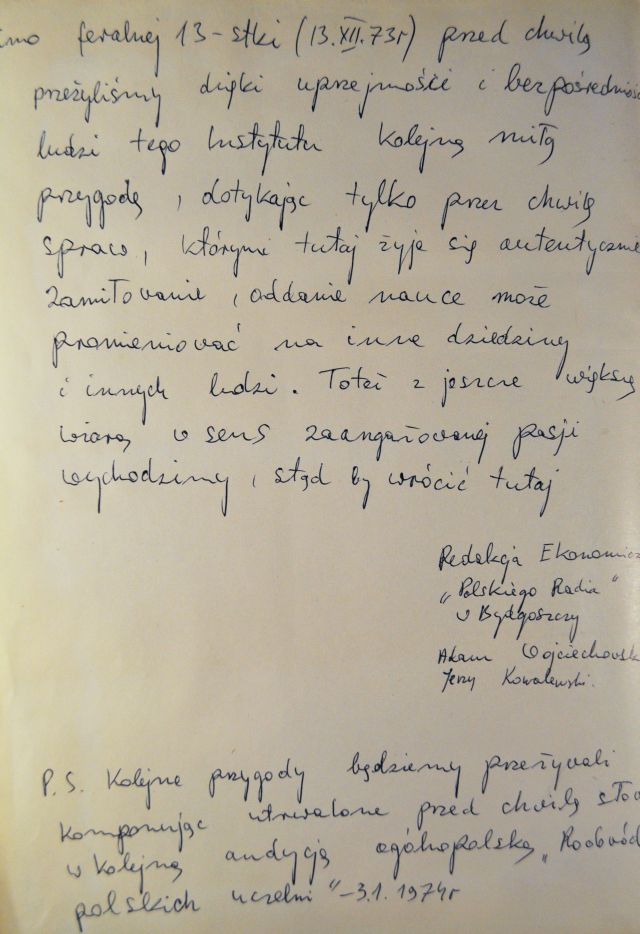 imo feralnej 13-stki (13.XII.73r) przed chwilą
przeżyliśmy dzięki uprzejmości i bezpośrednioś
ludzi tego Instytutu kolejną miłą
przygodę, dotykając tylko przez chwilę
spraw, którymi tutaj żyje się autentycznie
Zamiłowanie, oddanie nauce może
promieniować na inne dziedziny
i innych ludzi. Toteż z jeszcze większą
wiarą w sens zaangażowanej pasji
wychodzimy, stąd by wrócić tutaj
Redakcja Ekonomicz
„Polskiego Radia"
w Bydgoszczy
Adam Wojciechowsk
Jerzy Kowalewski.
P.S. Kolejne przygody będziemy przeżywali
komponując utrwalone przed chwilą słow
w kolejną audycją ogólnopolską „Roobród
polskich uczelni" - 3.1.1974r